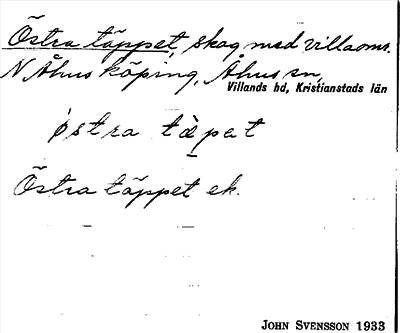 Östra täppet, skog med villaomr.
N Åhus köping, Åhus sn,
Villands hd, Kristianstads län
østra tæ̀pet
Östra täppet ek.
JOHN SVENSSON 1933